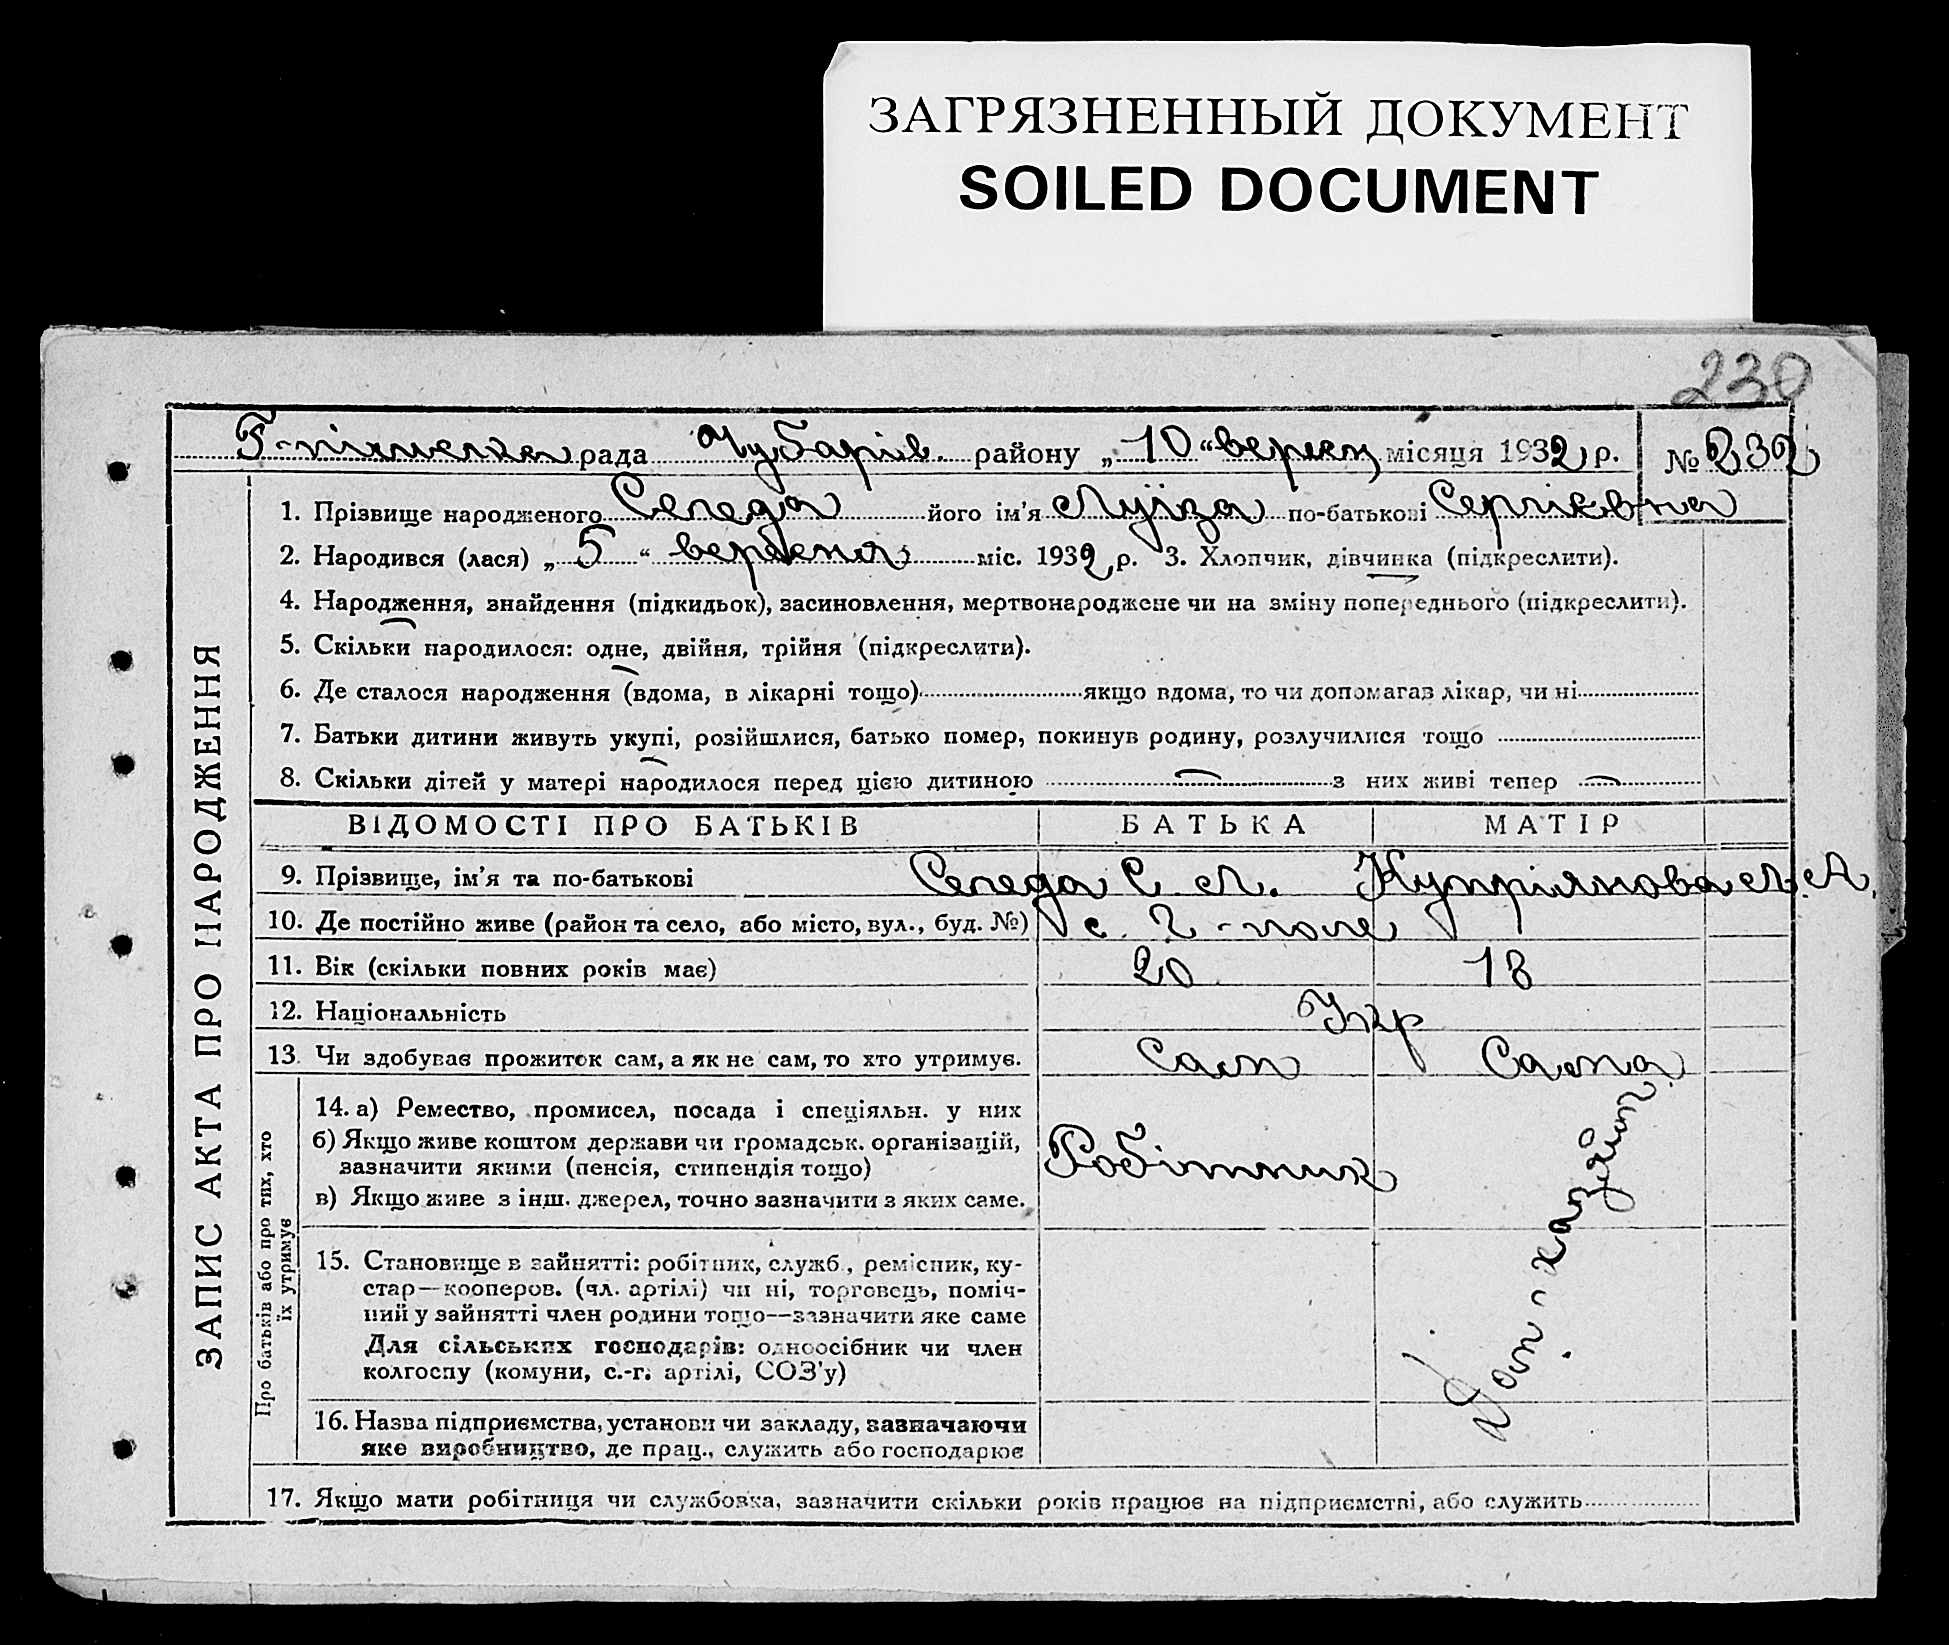 ЗАГРЯЗНЕННЫЙ ДОКУМЕНТ
SOILED DOCUMENT
230
рада Чубарів. району „10“ вересн місяця 1932 р. № 232
ЗАПИС АКТА ПРО НАРОДЖЕННЯ
1. Прізвище народженого Середа його ім'я Луїза по-батькові Сергіївна
2. Народився (лася) „5“ вересня міс. 1932 р. 3. Хлопчик, дівчинка (підкреслити).
4. Народження, знайдення (підкидьок), засиновлення, мертвонароджене чи на зміну попереднього (підкреслити).
5. Скільки народилося: одне, двійня, трійня (підкреслити).
6. Де сталося народження (вдома, в лікарні тощо) якщо вдома, то чи допомагав лікар, чи ні
7. Батьки дитини живуть укупі, розійшлися, батько помер, покинув родину, розлучилися тощо
8. Скільки дітей у матері народилося перед цією дитиною — з них живі тепер —
ВІДОМОСТІ ПРО БАТЬКІВ БАТЬКА МАТІР
9. Прізвище, ім'я та по-батькові Середа С. Л. Купріянова Л. А.
10. Де постійно живе (район та село, або місто, вул., буд. №) с. Г-поле
11. Вік (скільки повних років має) 20 18
12. Національність Укр
13. Чи здобуває прожиток сам, а як не сам, то хто утримує. Сам Сама
Про батьків або про тих, хто
їх утримує
14. а) Ремество, промисел, посада і спеціяльн. у них
б) Якщо живе коштом держави чи громадськ. організацій,
зазначити якими (пенсія, стипендія тощо)
в) Якщо живе з інш. джерел, точно зазначити з яких саме.
Робітник
Дом-хазяйка
15. Становище в зайнятті: робітник, служб., ремісник, ку-
стар—кооперов. (чл. артілі) чи ні, торговець, поміч-
ний у зайнятті член родини тощо—зазначити яке саме
Для сільських господарів: одноосібник чи член
колгоспу (комуни, с.-г. артілі, СОЗ'у)
16. Назва підприємства, установи чи закладу, зазначаючи
яке виробництво, де прац., служить або господарює
17. Якщо мати робітниця чи службовка, зазначити скільки років працює на підприємстві, або служить